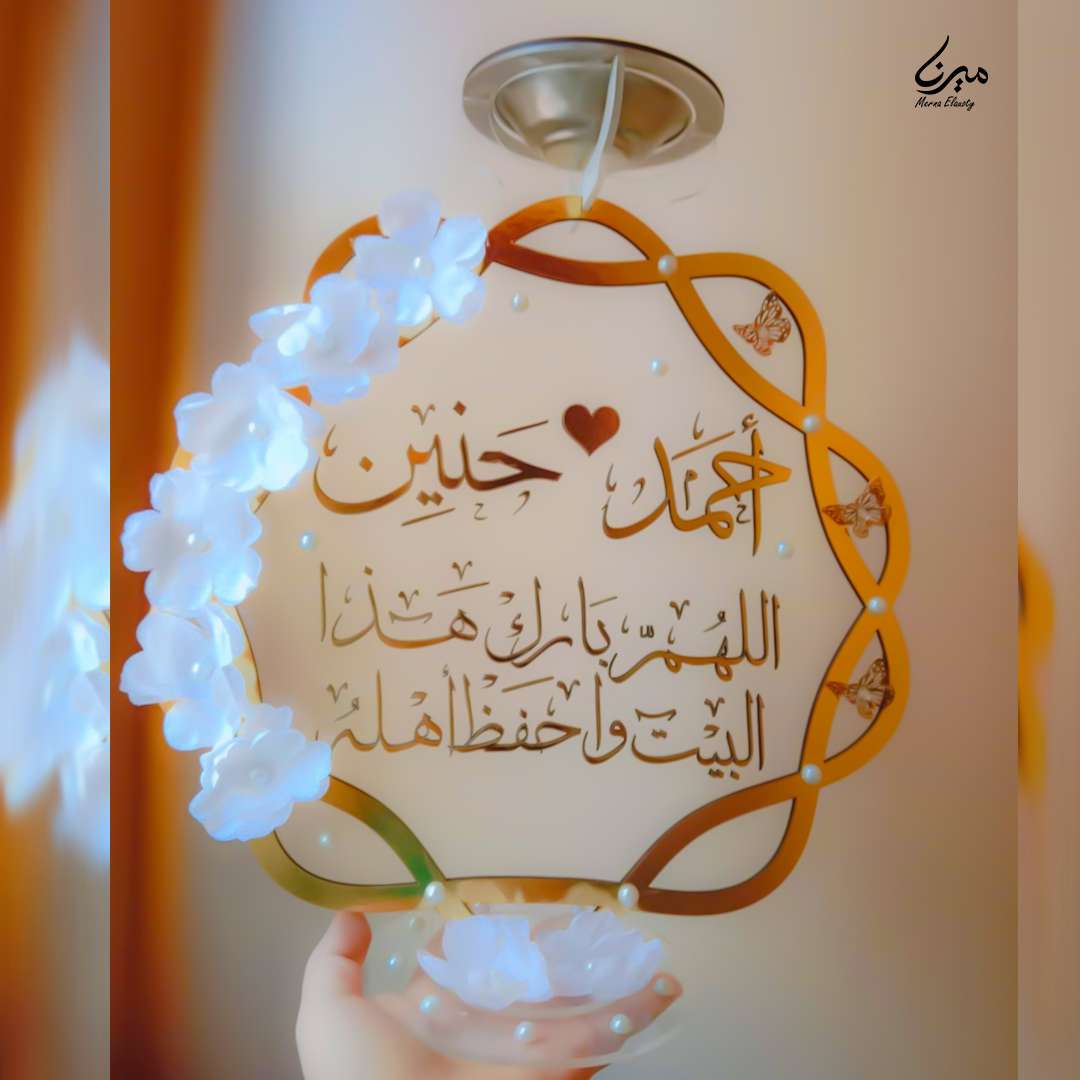 ميرنا
Merna Elausty
أحمَد ♥ حَنيِن
اللهُمّ بَارك هَذا
البيت واحفَظ أهلهُ